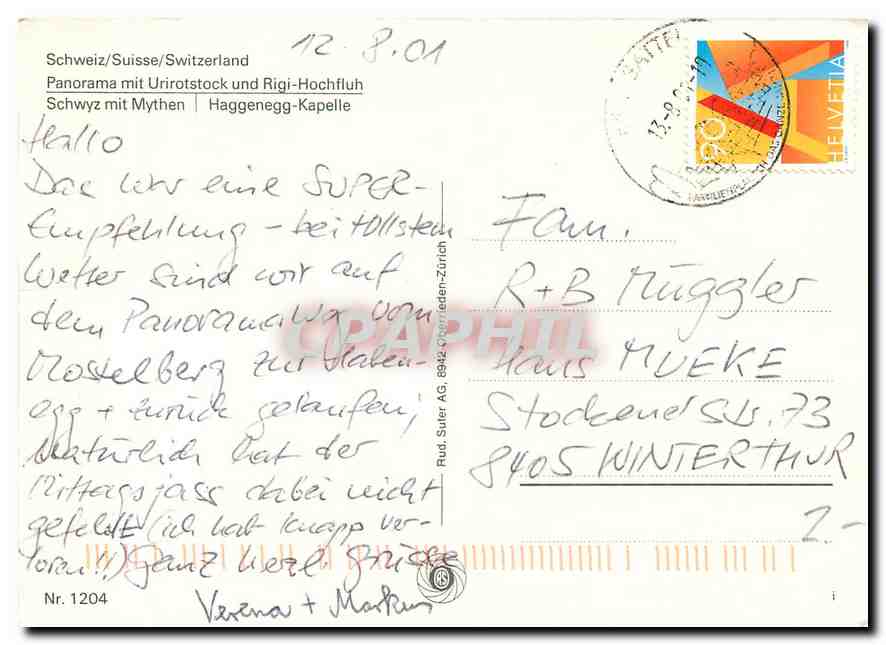 12.8.01
Schweiz/Suisse/Switzerland
Panorama mit Urirotstock und Rigi-Hochfluh
Schwyz mit Mythen | Haggenegg-Kapelle
Hallo
Das war eine SUPER-
Empfehlung – bei tollstem
Wetter sind wir auf
dem Panoramaweg vom
Mostelberg zur Haben-
egg + zurück gelaufen,
Natürlich hat der
Mittagsjass dabei nicht
gefehlt (ich hat knapp ver-
loren!!) Ganz herzl. Grüsse
Verena + Markus
Nr. 1204
Rud. Suter AG, 8942 Oberrieden-Zürich
SATTEL
13.-8.01-19
HELVETIA
90
Fam.
R+B Müggler
Haus MUEKE
Stockenerstr. 73
8405 WINTERTHUR
2.-
i
CPAPHIL